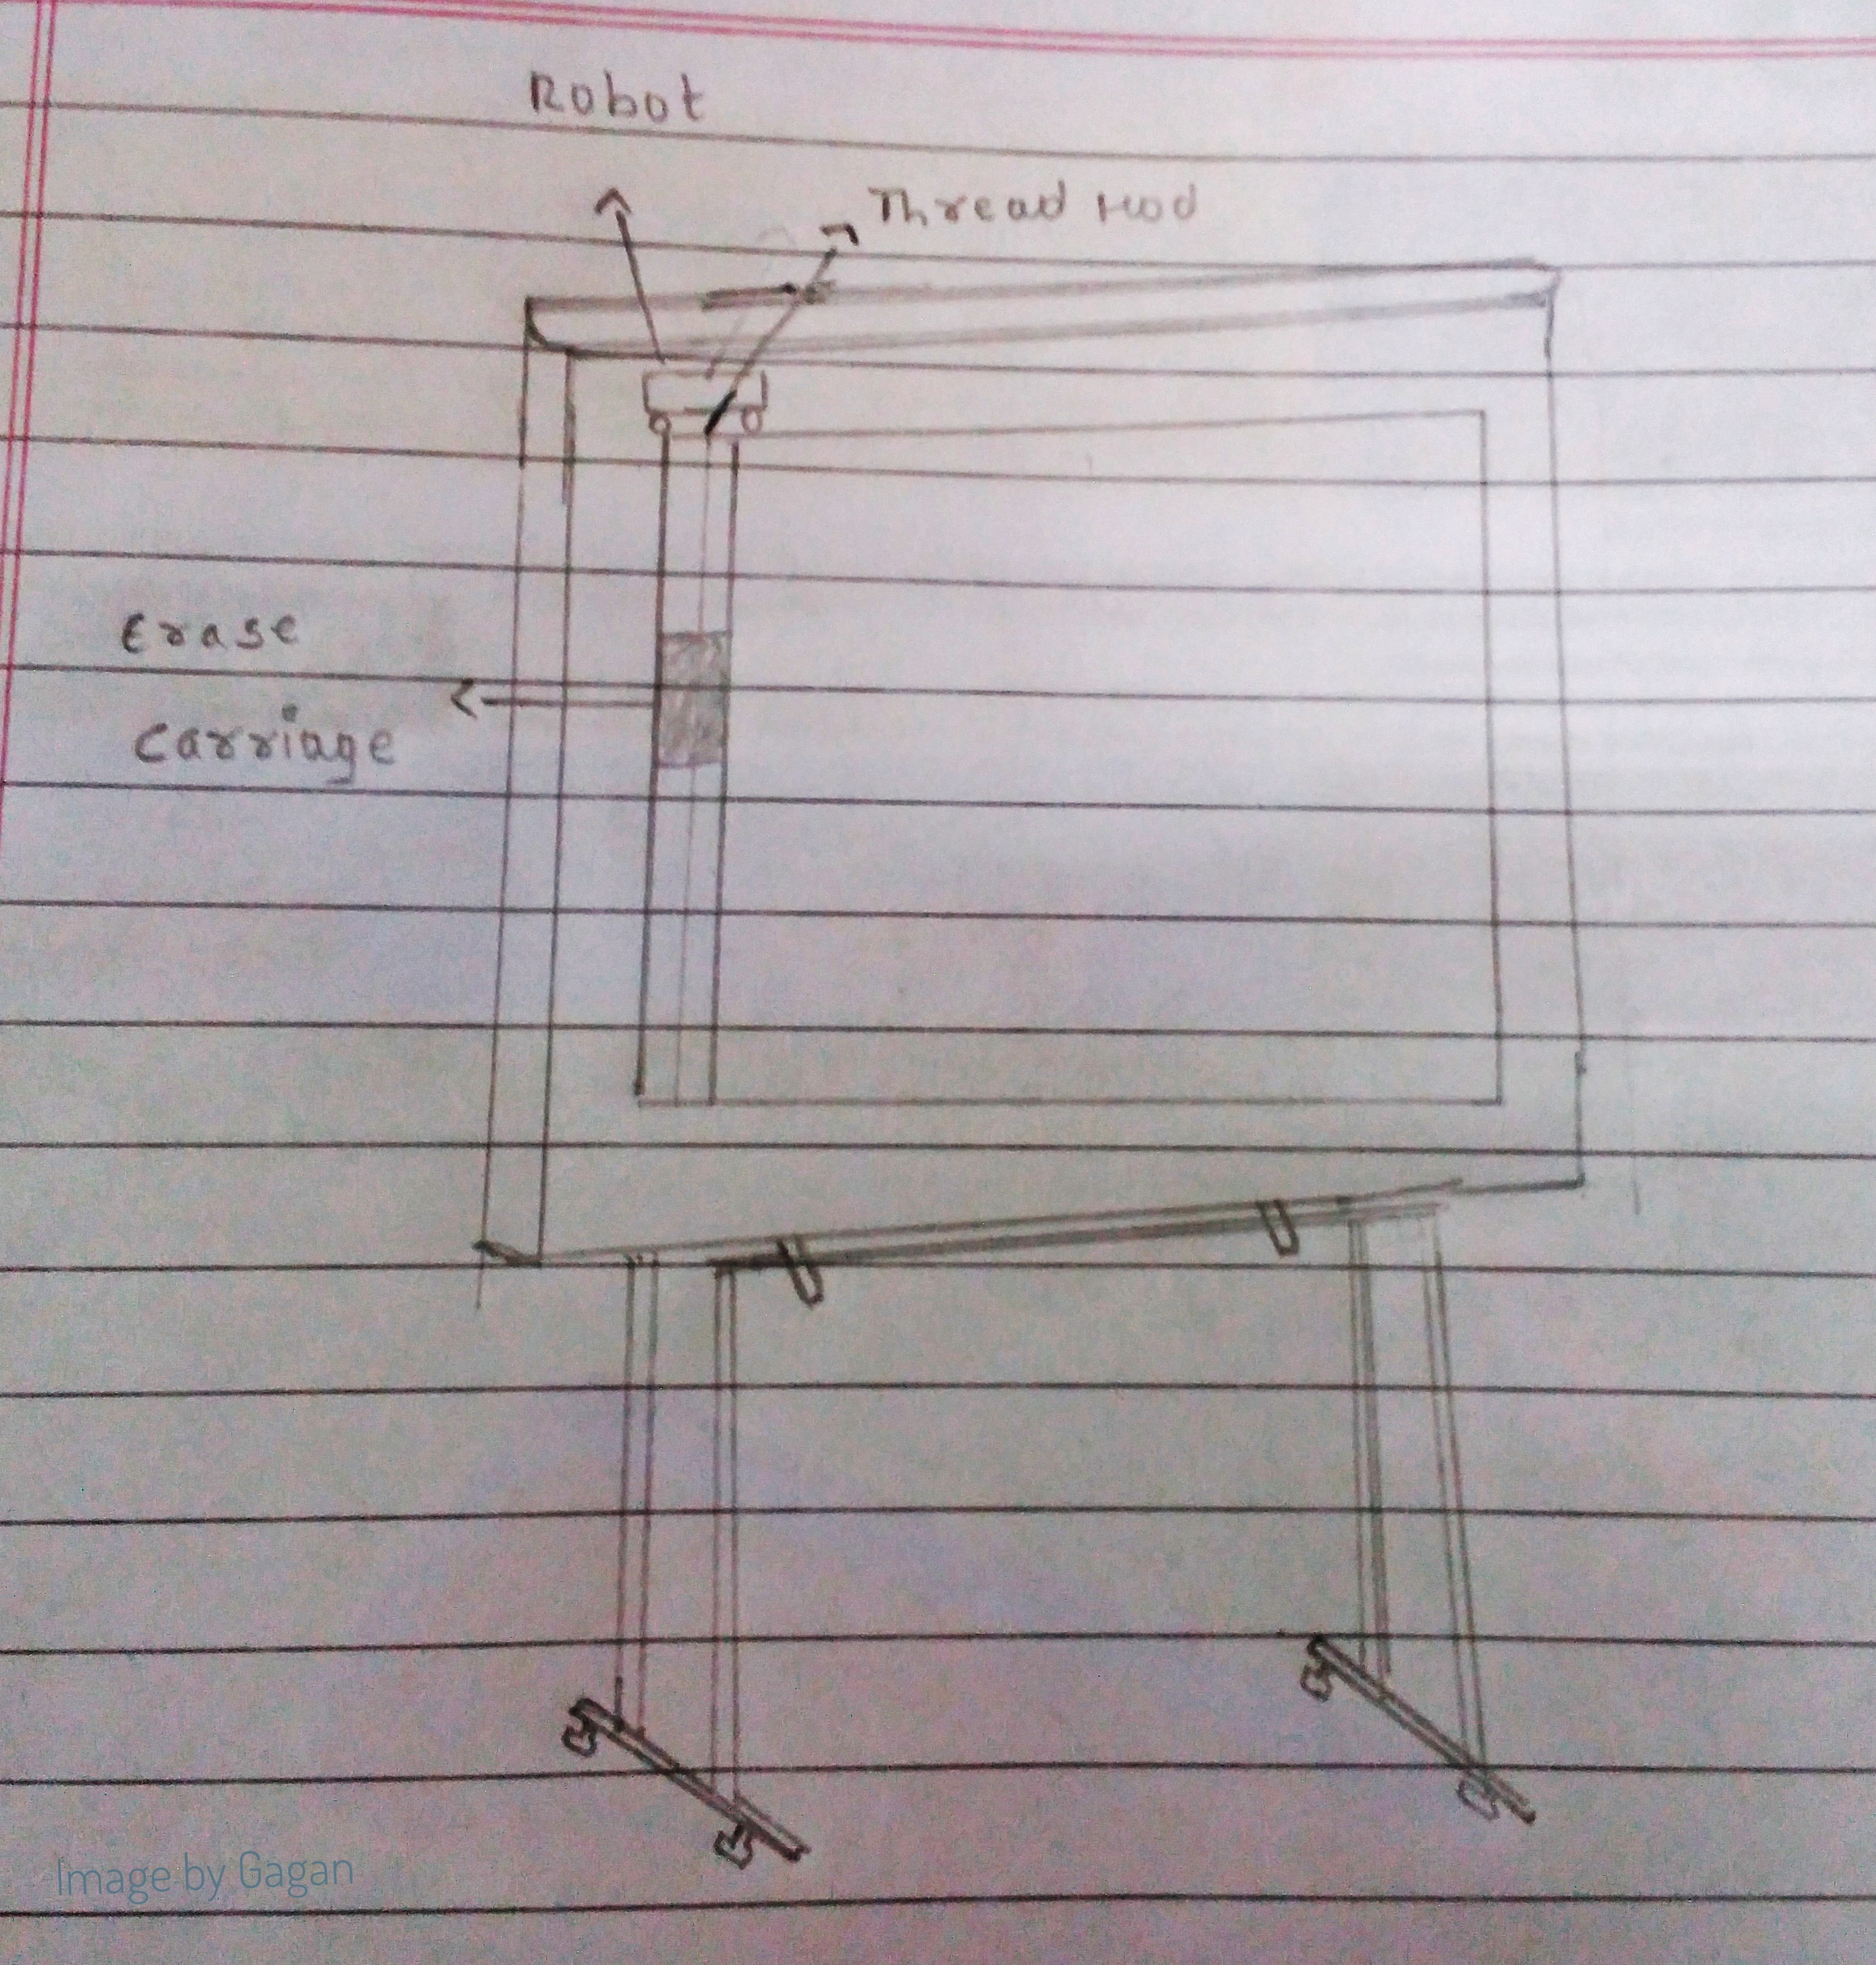 Robot
Thread Rod
Erase
Carriage
Image by Gagan